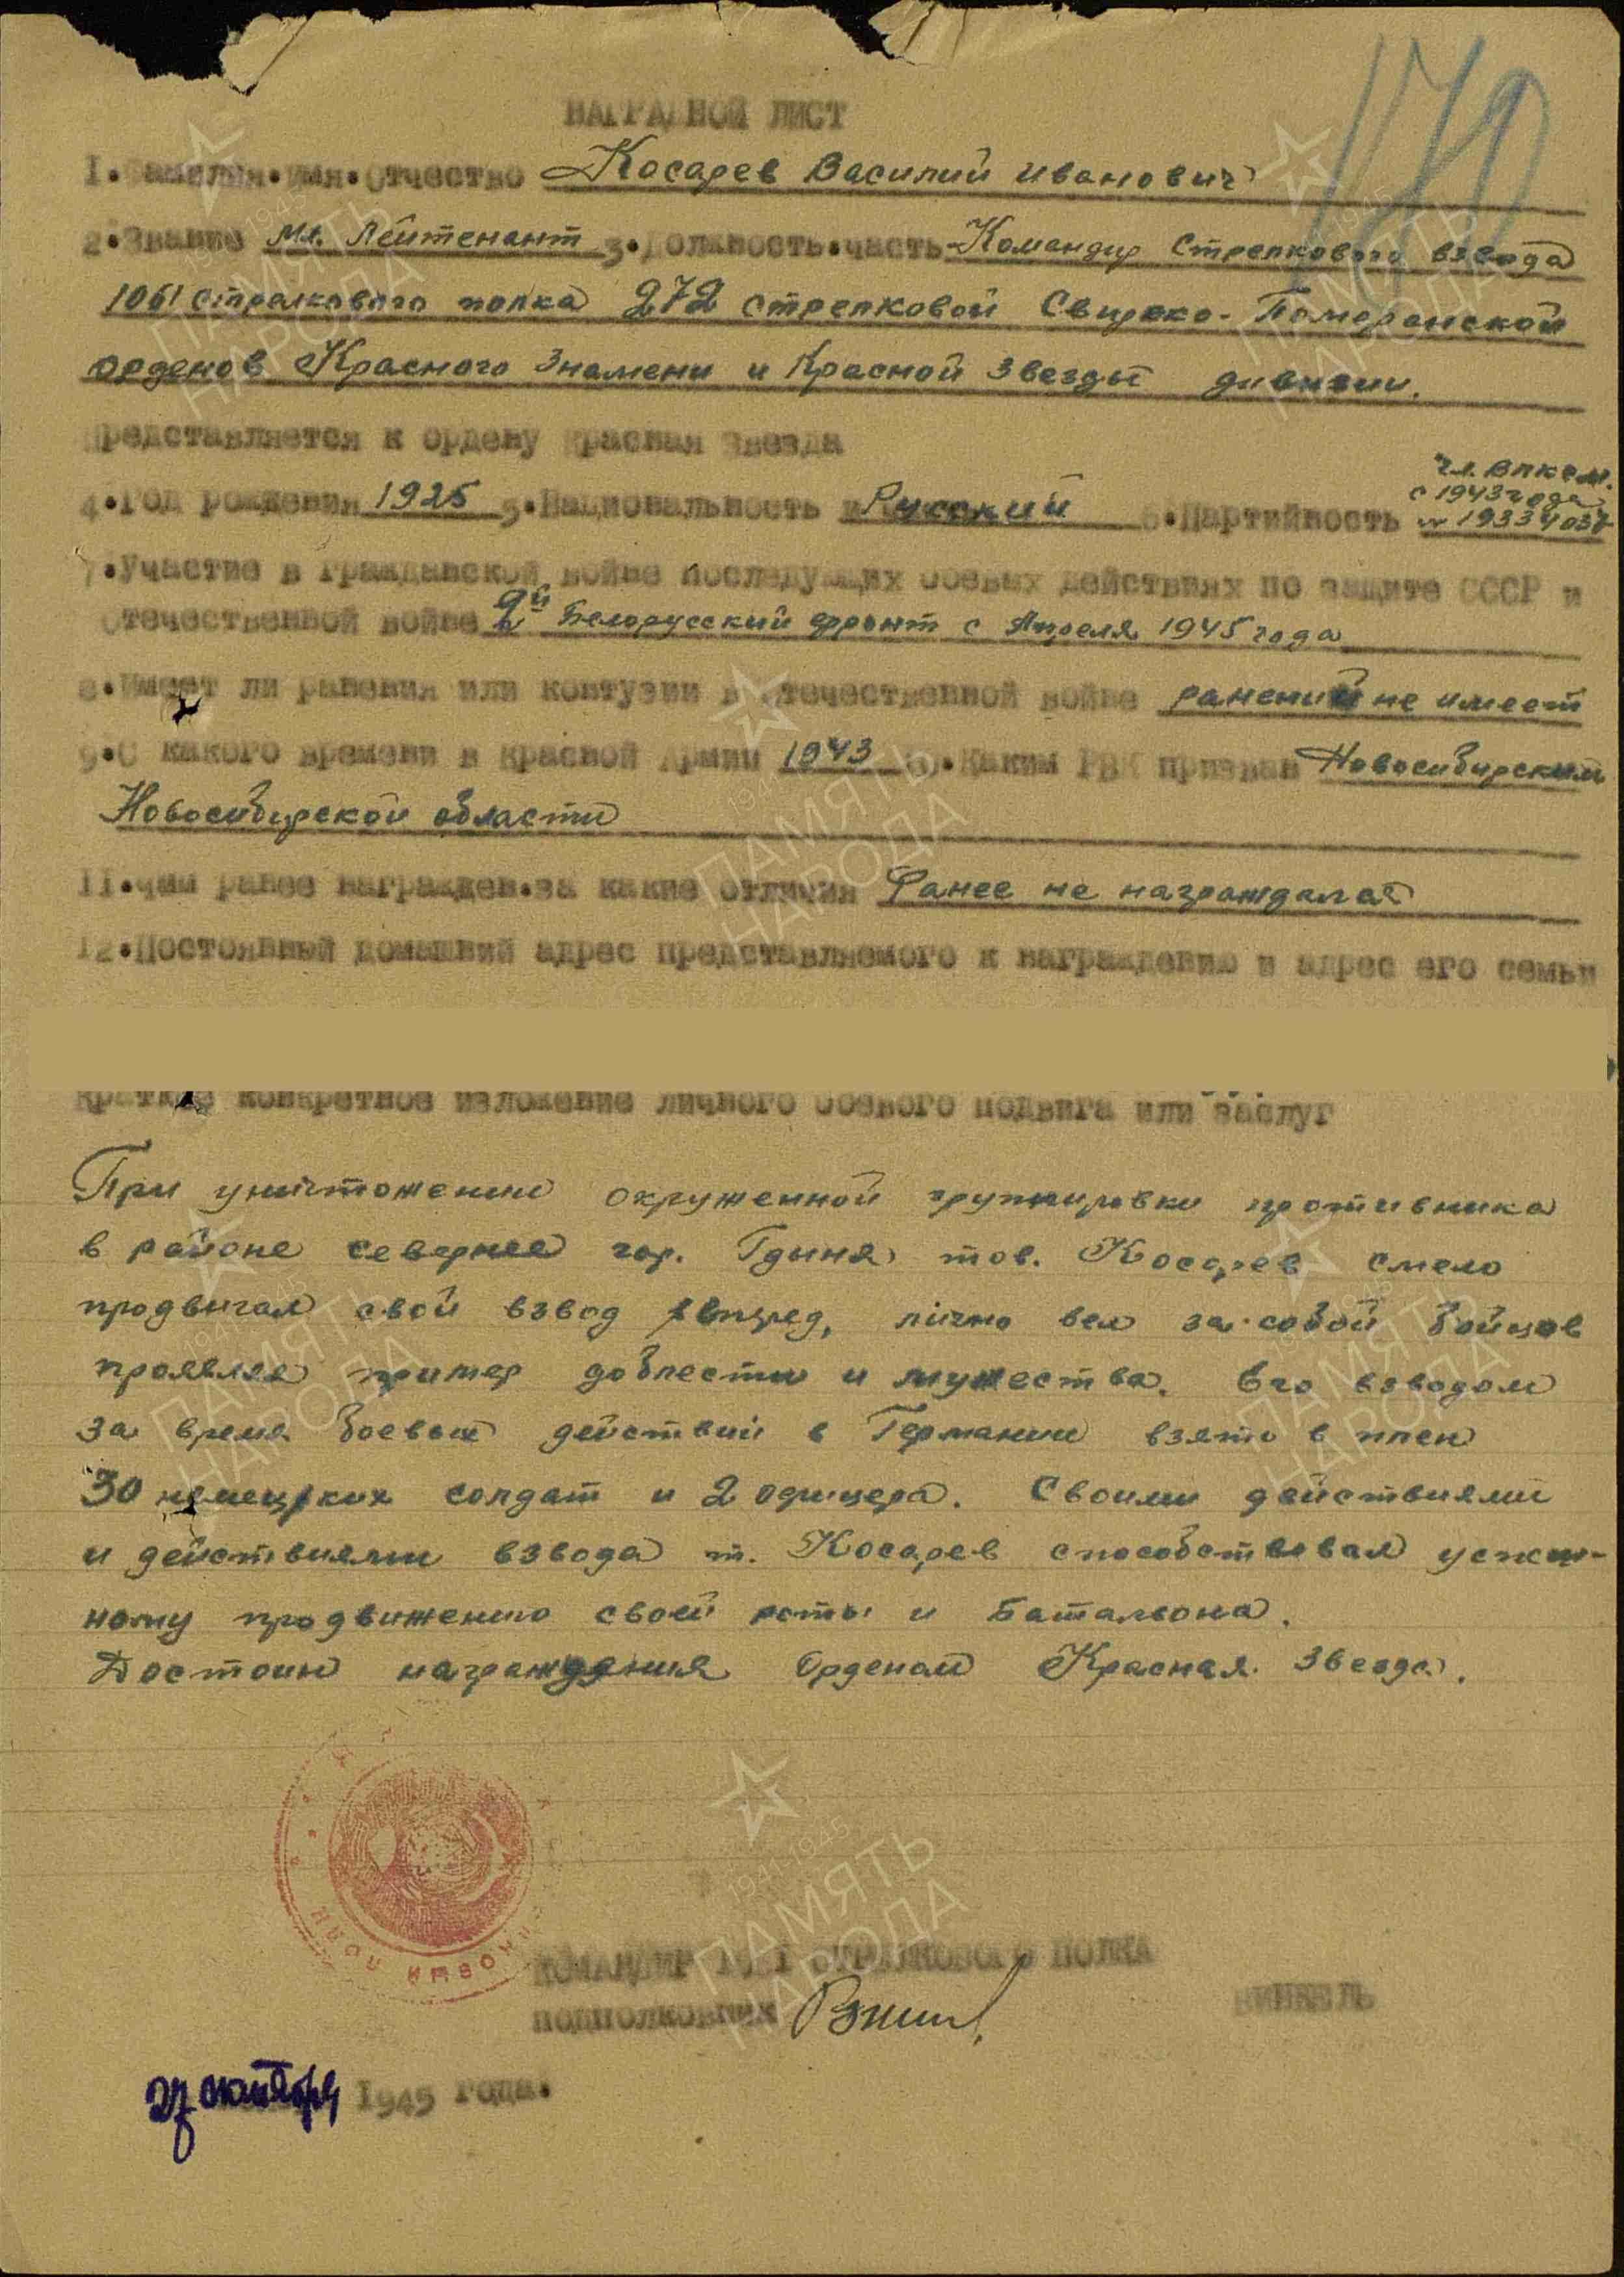 179
НАГРАДНОЙ ЛИСТ
1.Фамилия.имя.отчество Косарев Василий Иванович
2.Звание мл. Лейтенант 3.Должность.часть Командир Стрелкового взвода
1061 стрелкового полка 272 стрелковой Свирско-Померанской
орденов Красного Знамени и Красной Звезды дивизии.
Представляется к ордену Красная Звезда
чл. ВЛКСМ.
с 1943 года
4.Год рождения 1925 5.Национальность Русский 6.Партийность № 19334037
7.Участие в гражданской войне последующих боевых действиях по защите СССР и
отечественной войне 2й Белорусский фронт с Апреля 1945 года
8.Имеет ли ранения или контузии в отечественной войне ранений не имеет
9.С какого времени в Красной Армии 1943 10.Каким РВК призван Новосибирским
Новосибирской области
11.чем ранее награжден.за какие отличия Ранее не награждался
12.Постоянный домашний адрес представляемого к награждению и адрес его семьи
Краткое конкретное изложение личного боевого подвига или заслуг
При уничтожении окруженной группировки противника
в районе севернее гор. Гдыня тов. Косарев смело
продвигал свой взвод вперед, лично вел за собой бойцов
проявляя пример доблести и мужества. Его взводом
за время боевых действий в Германии взято в плен
30 немецких солдат и 2 офицера. Своими действиями
и действиями взвода т. Косарев способствовал успеш-
ному продвижению своей роты и Батальона.
Достоин награждения Орденом Красная Звезда.
КОМАНДИР 1061 СТРЕЛКОВОГО ПОЛКА
ПОДПОЛКОВНИК ВИНБЕЛЬ
27 октября 1945 года.
ПАМЯТЬ НАРОДА
1941-1945